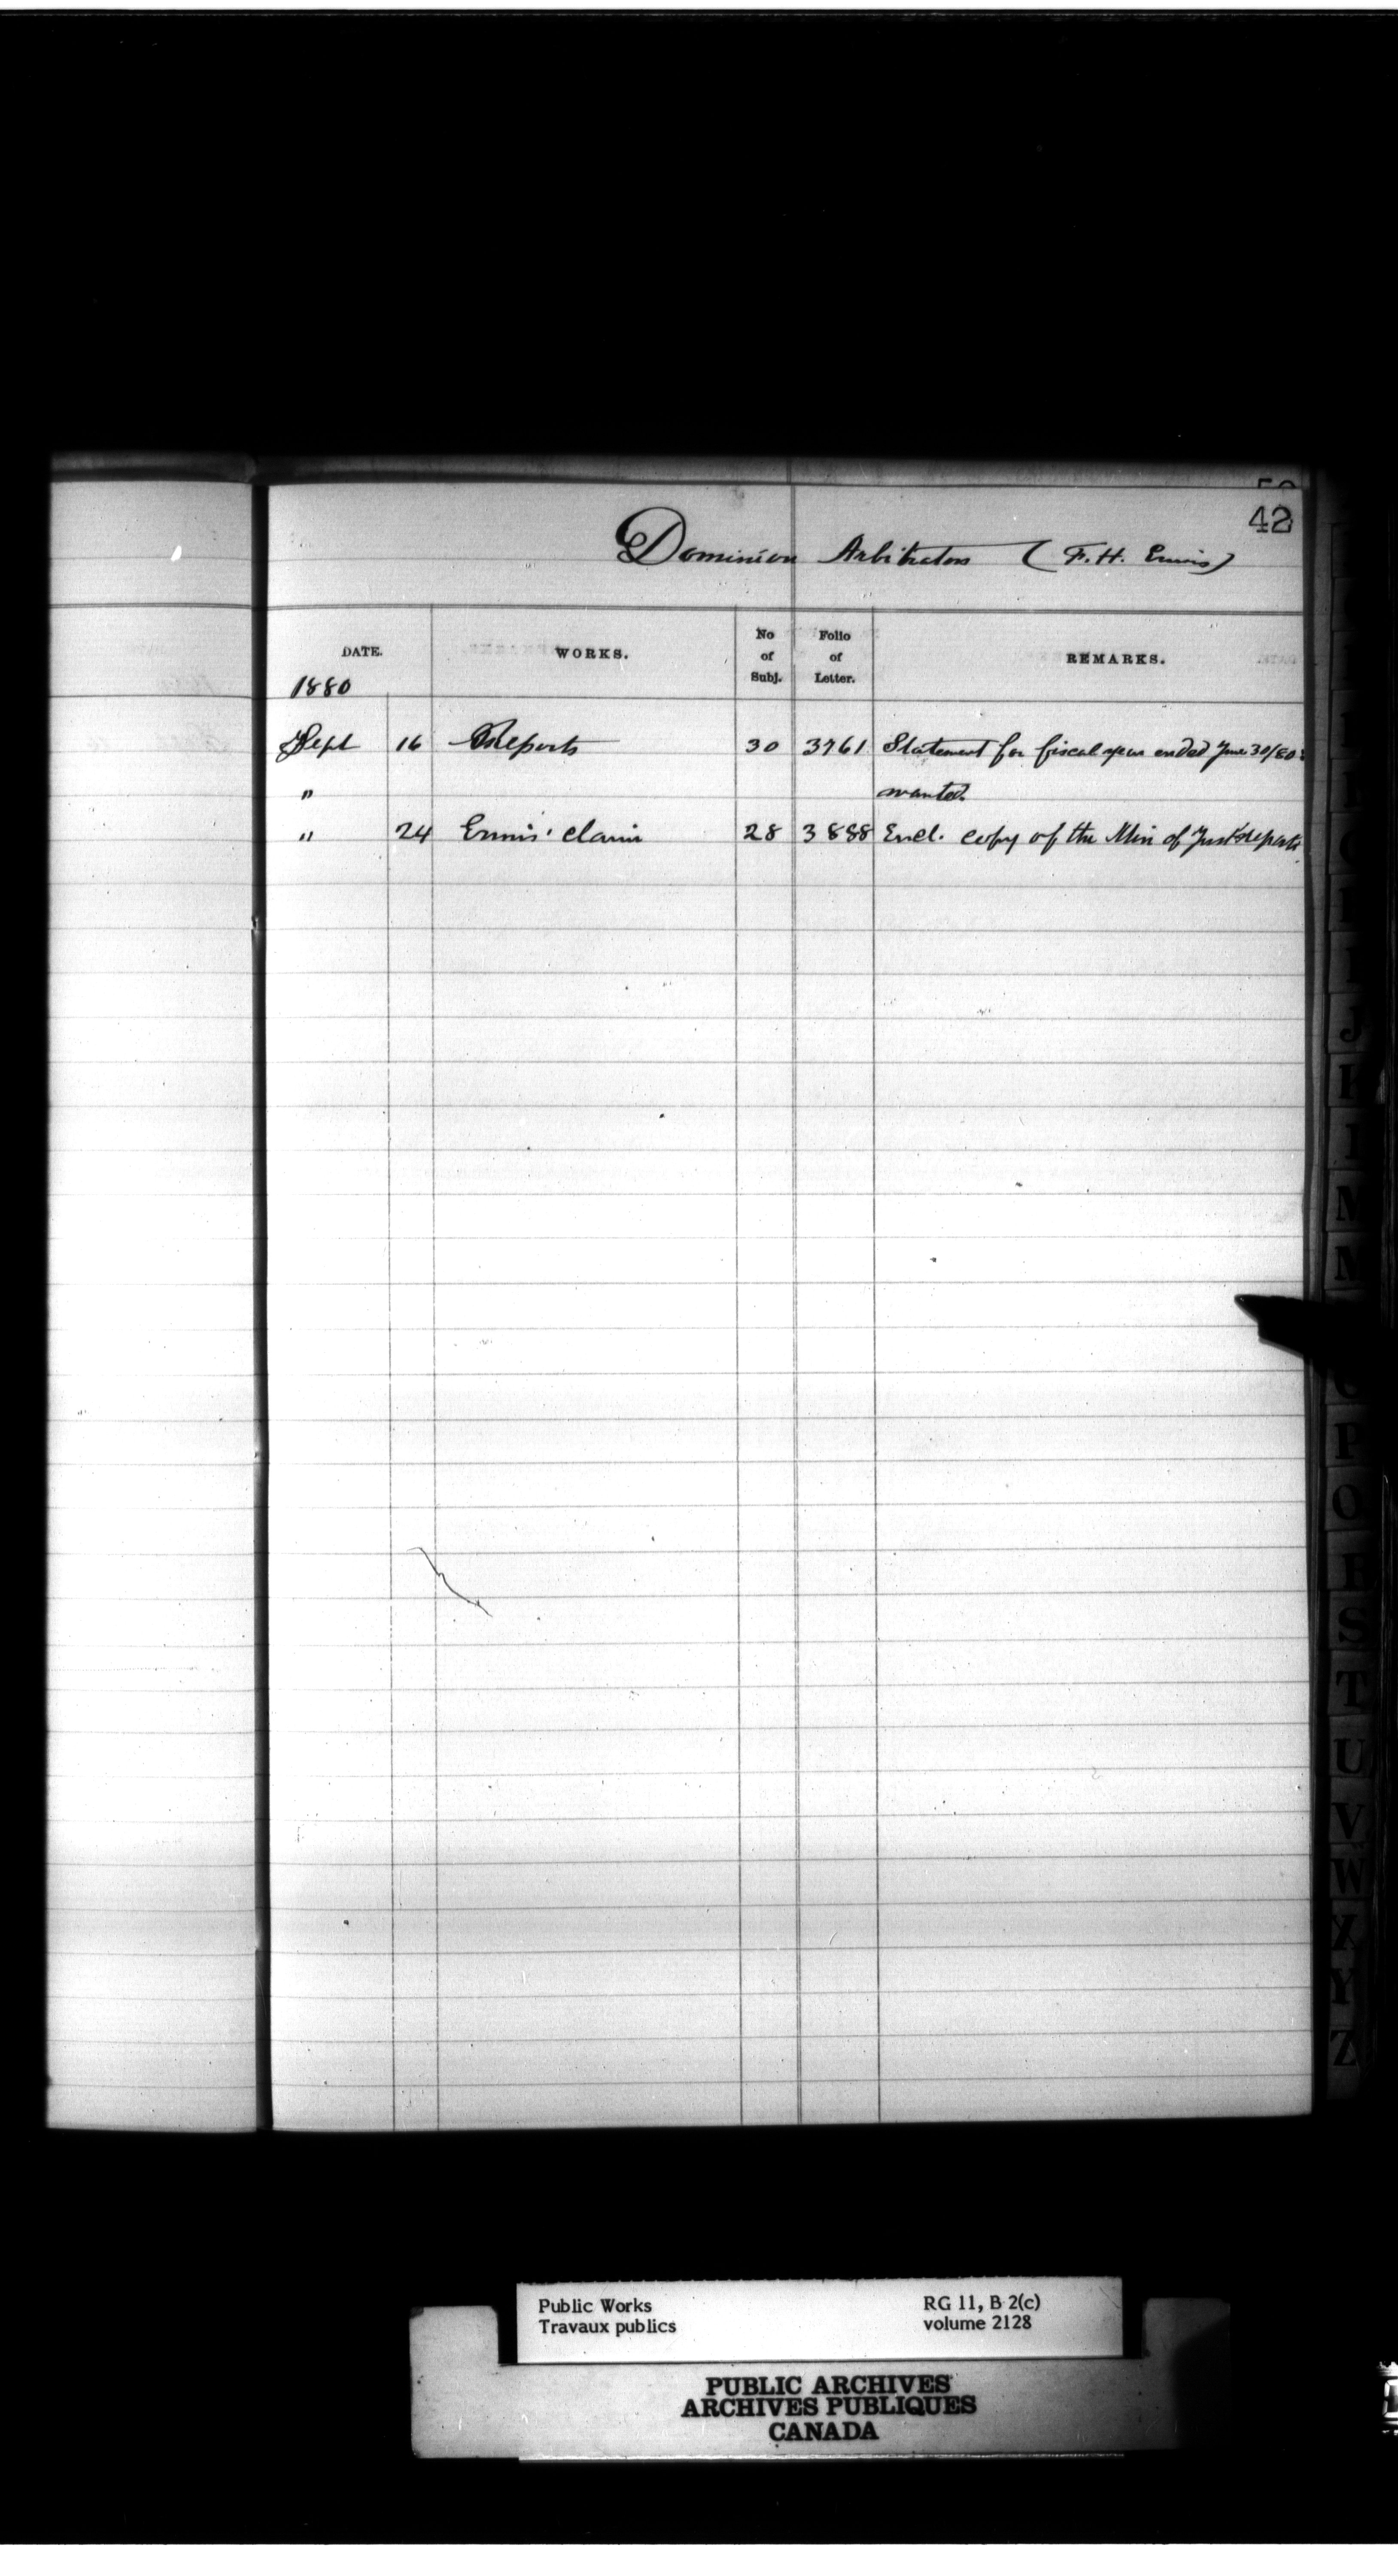 42
Dominion Arbitrators (F. H. Ennis)
DATE. WORKS. No of Subj. Folio of Letter. REMARKS.
1880
Sept 16 Reports 30 3761 Statement for fiscal year ended June 30/80:
" wanted.
" 24 Ennis' claim 28 3888 Encl. copy of the Min of Just's reports
J
K
N
P
S
T
U
V
W
X
Y
Z
Public Works RG 11, B 2(c)
Travaux publics volume 2128
PUBLIC ARCHIVES
ARCHIVES PUBLIQUES
CANADA